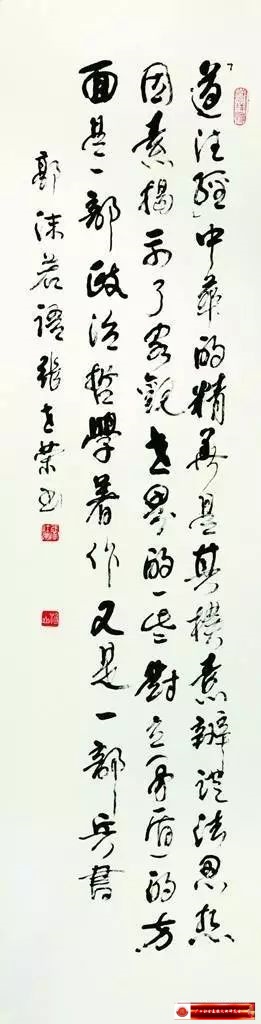 「道德經」中華的精華是其樸素辯證法思想
因素揭示了客觀世界的一些對立(矛盾)的方
面是一部政治哲學著作又是一部兵書
郭沫若語張世榮書